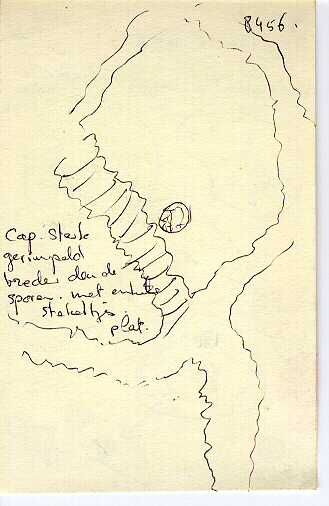 8456.
Cap. Sterk
gerimpeld
breder dan de
sporen. met enkele
stekeltjes.
plat.